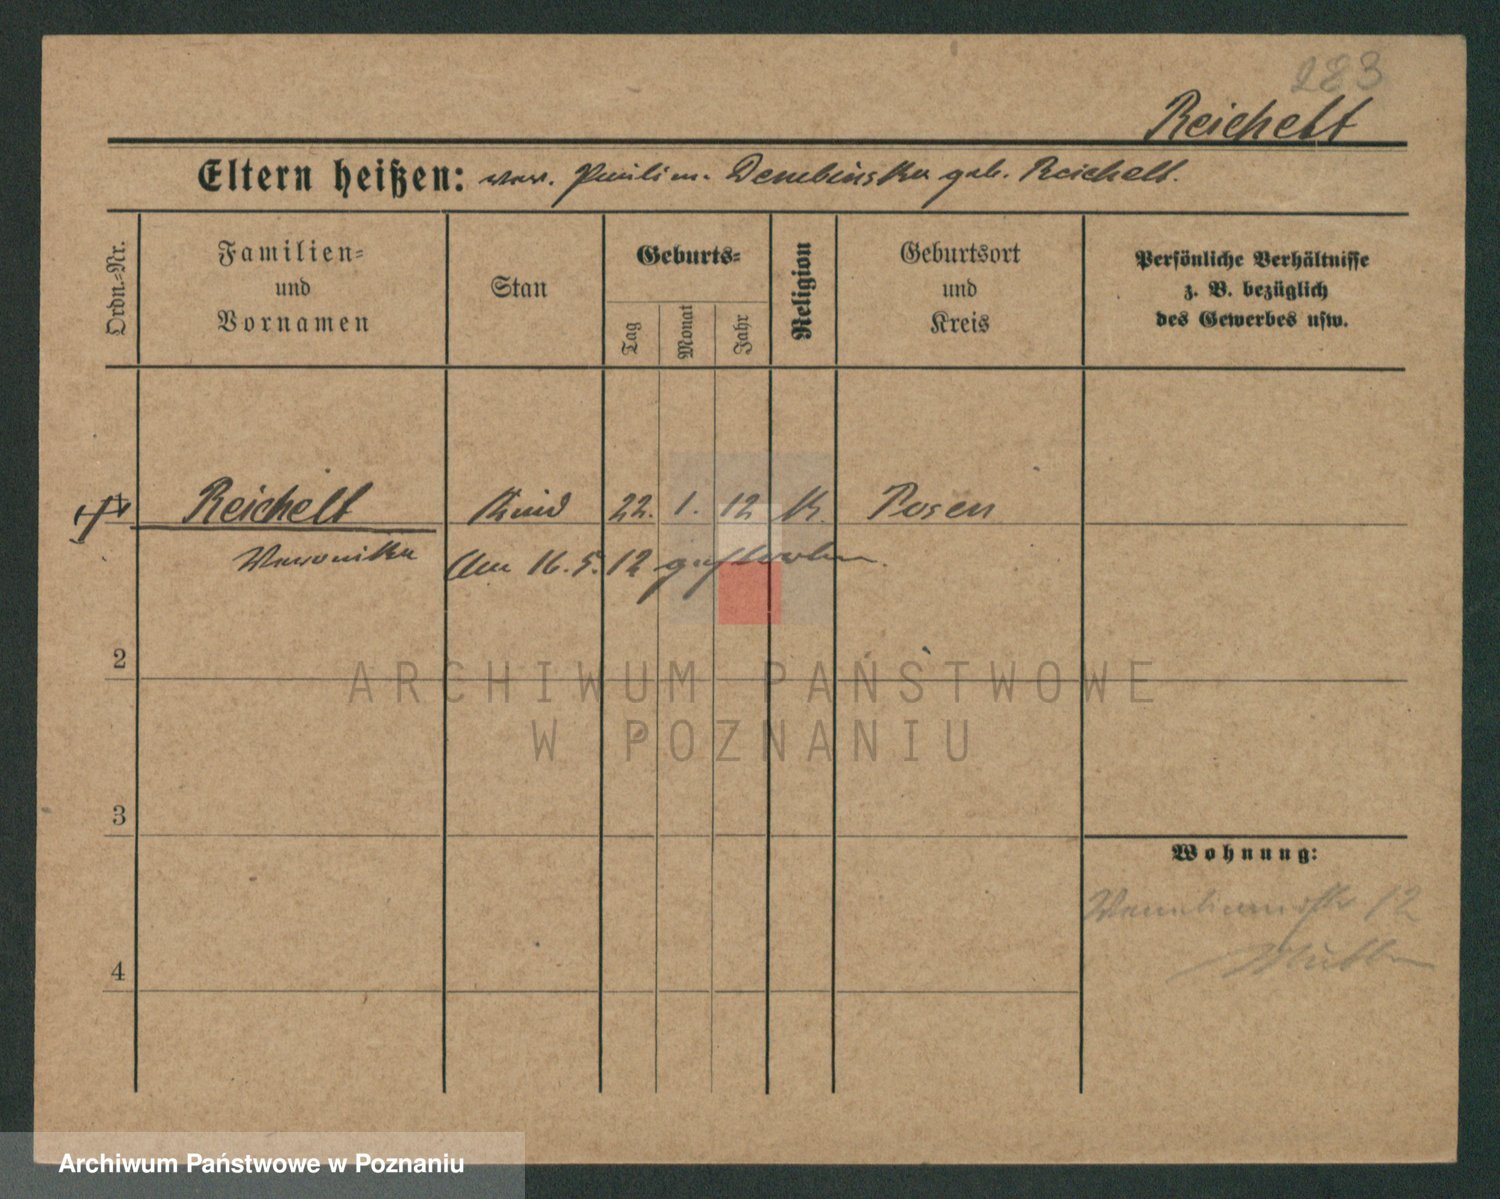 283
Reichelt
Eltern heißen: verw. Dembinska geb. Reichelt.
Ordn.-Nr.
Familien-
und
Vornamen
Stan
Geburts-
Tag
Monat
Jahr
Religion
Geburtsort
und
Kreis
Persönliche Verhältnisse
z. B. bezüglich
des Gewerbes usw.
Reichelt Kind 22. 1. 12 K. Posen
Veronika Am 16. 5. 12 gestorben.
2
3
4
Wohnung:
12
Mutter
ARCHIWUM PAŃSTWOWE
W POZNANIU
Archiwum Państwowe w Poznaniu